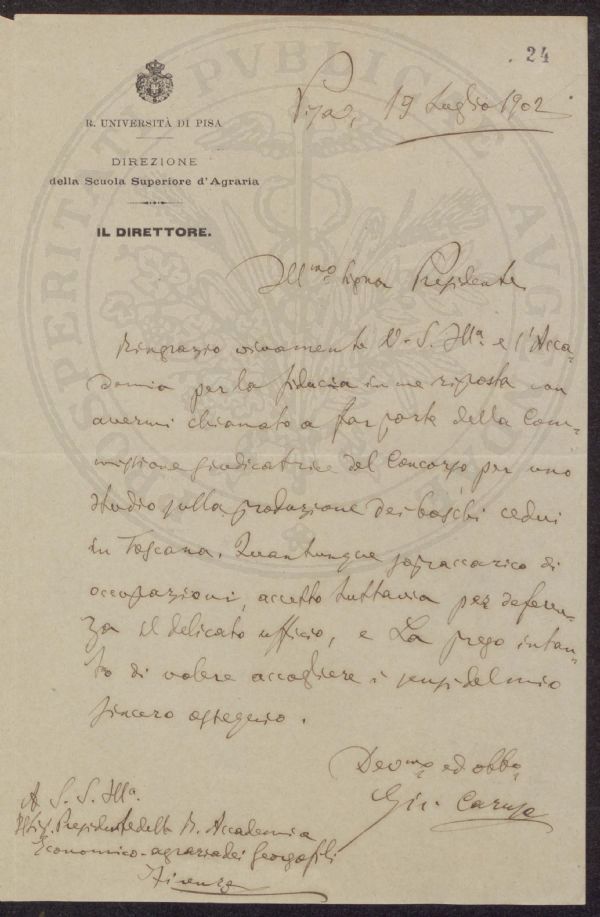 24
R. UNIVERSITÀ DI PISA
DIREZIONE
della Scuola Superiore d'Agraria
IL DIRETTORE.
Pisa, 19 Luglio 1902.
Ill.mo Signor Presidente
Ringrazio vivamente V. S. Ill.a e l'Acca-
demia per la fiducia in me riposta con
avermi chiamato a far parte della Com-
missione giudicatrice del Concorso per uno
studio sulla produzione dei boschi cedui
in Toscana. Quantunque sopraccarico di
occupazioni, accetto tuttavia per deferen-
za il delicato ufficio, e La prego intan-
to di volere accogliere i sensi del mio
sincero ossequio.
Dev.mo ed obb.o
Gir. Caruso
A S. S. Ill.a
Presidente della R. Accademia
Economico-agraria dei Georgofili
Firenze
PROSPERITATI PVBLICAE AVGENDAE